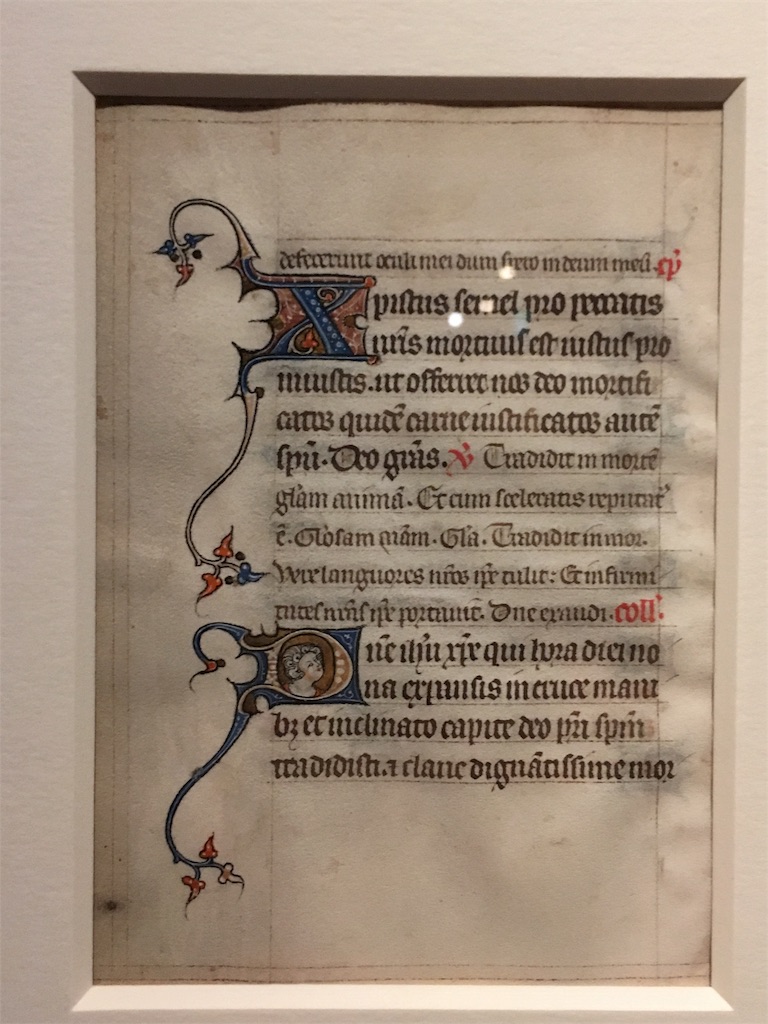 defecerunt oculi mei dum spero in deum meū. cp̄
Xpistus semel pro peccatis
nr̄is mortuus est iustus pro
iniustis. ut offerret nos deo mortifi
catos quidē carne iustificatos autē
spū. Deo grās. V̄ Tradidit in mortē
animā. Et cum sceleratis reputat᷒
ē. Gl̄a. Tradidit in mor.
Vere languores nr̄os ip̄e tulit: Et infirmi
tates nr̄as ip̄e portauit. Dn̄e exaudi. coll᷒.
Dn̄e ih̄u xp̄e qui hora diei no
na expansis in cruce mani
bꝫ et inclinato capite deo pr̄i sp̄m
tradidisti. ⁊ claue dignātissime mor